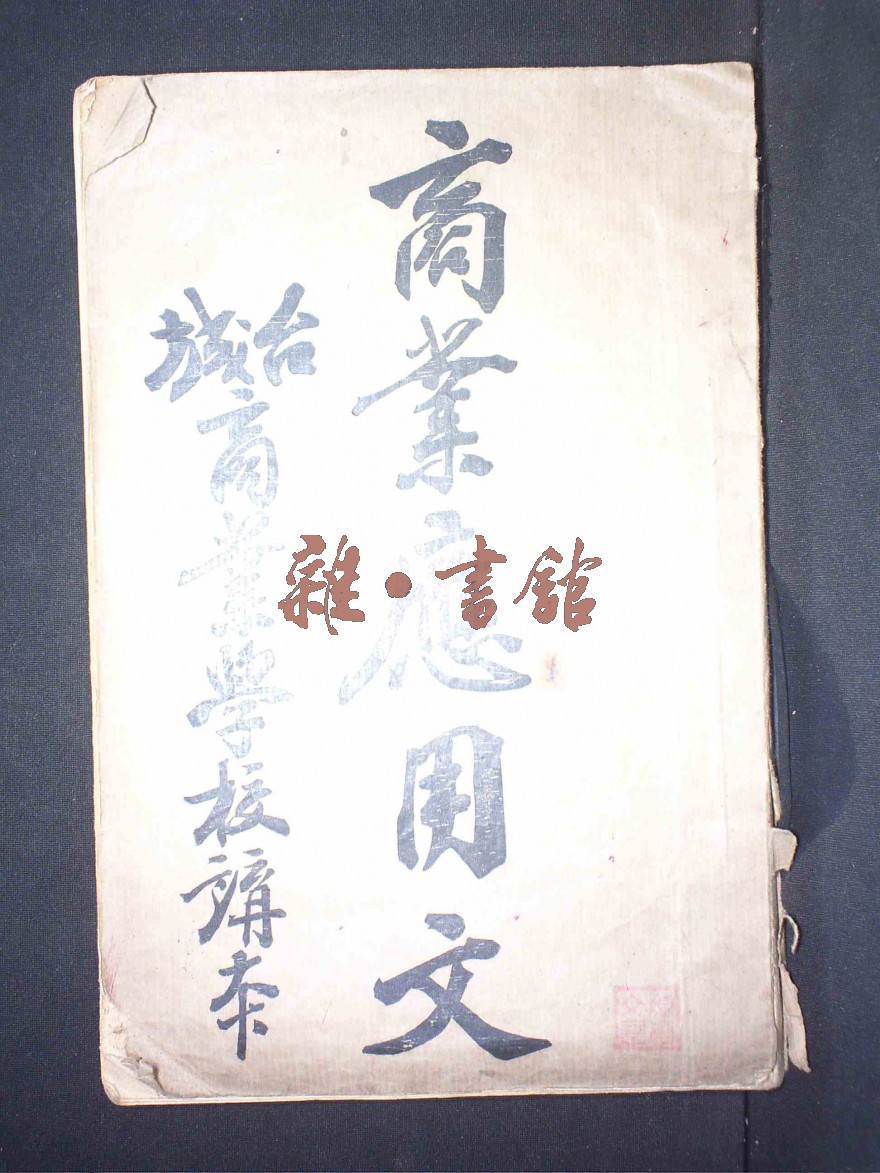 商業應用文
台城
商業學校講本
雜·書館